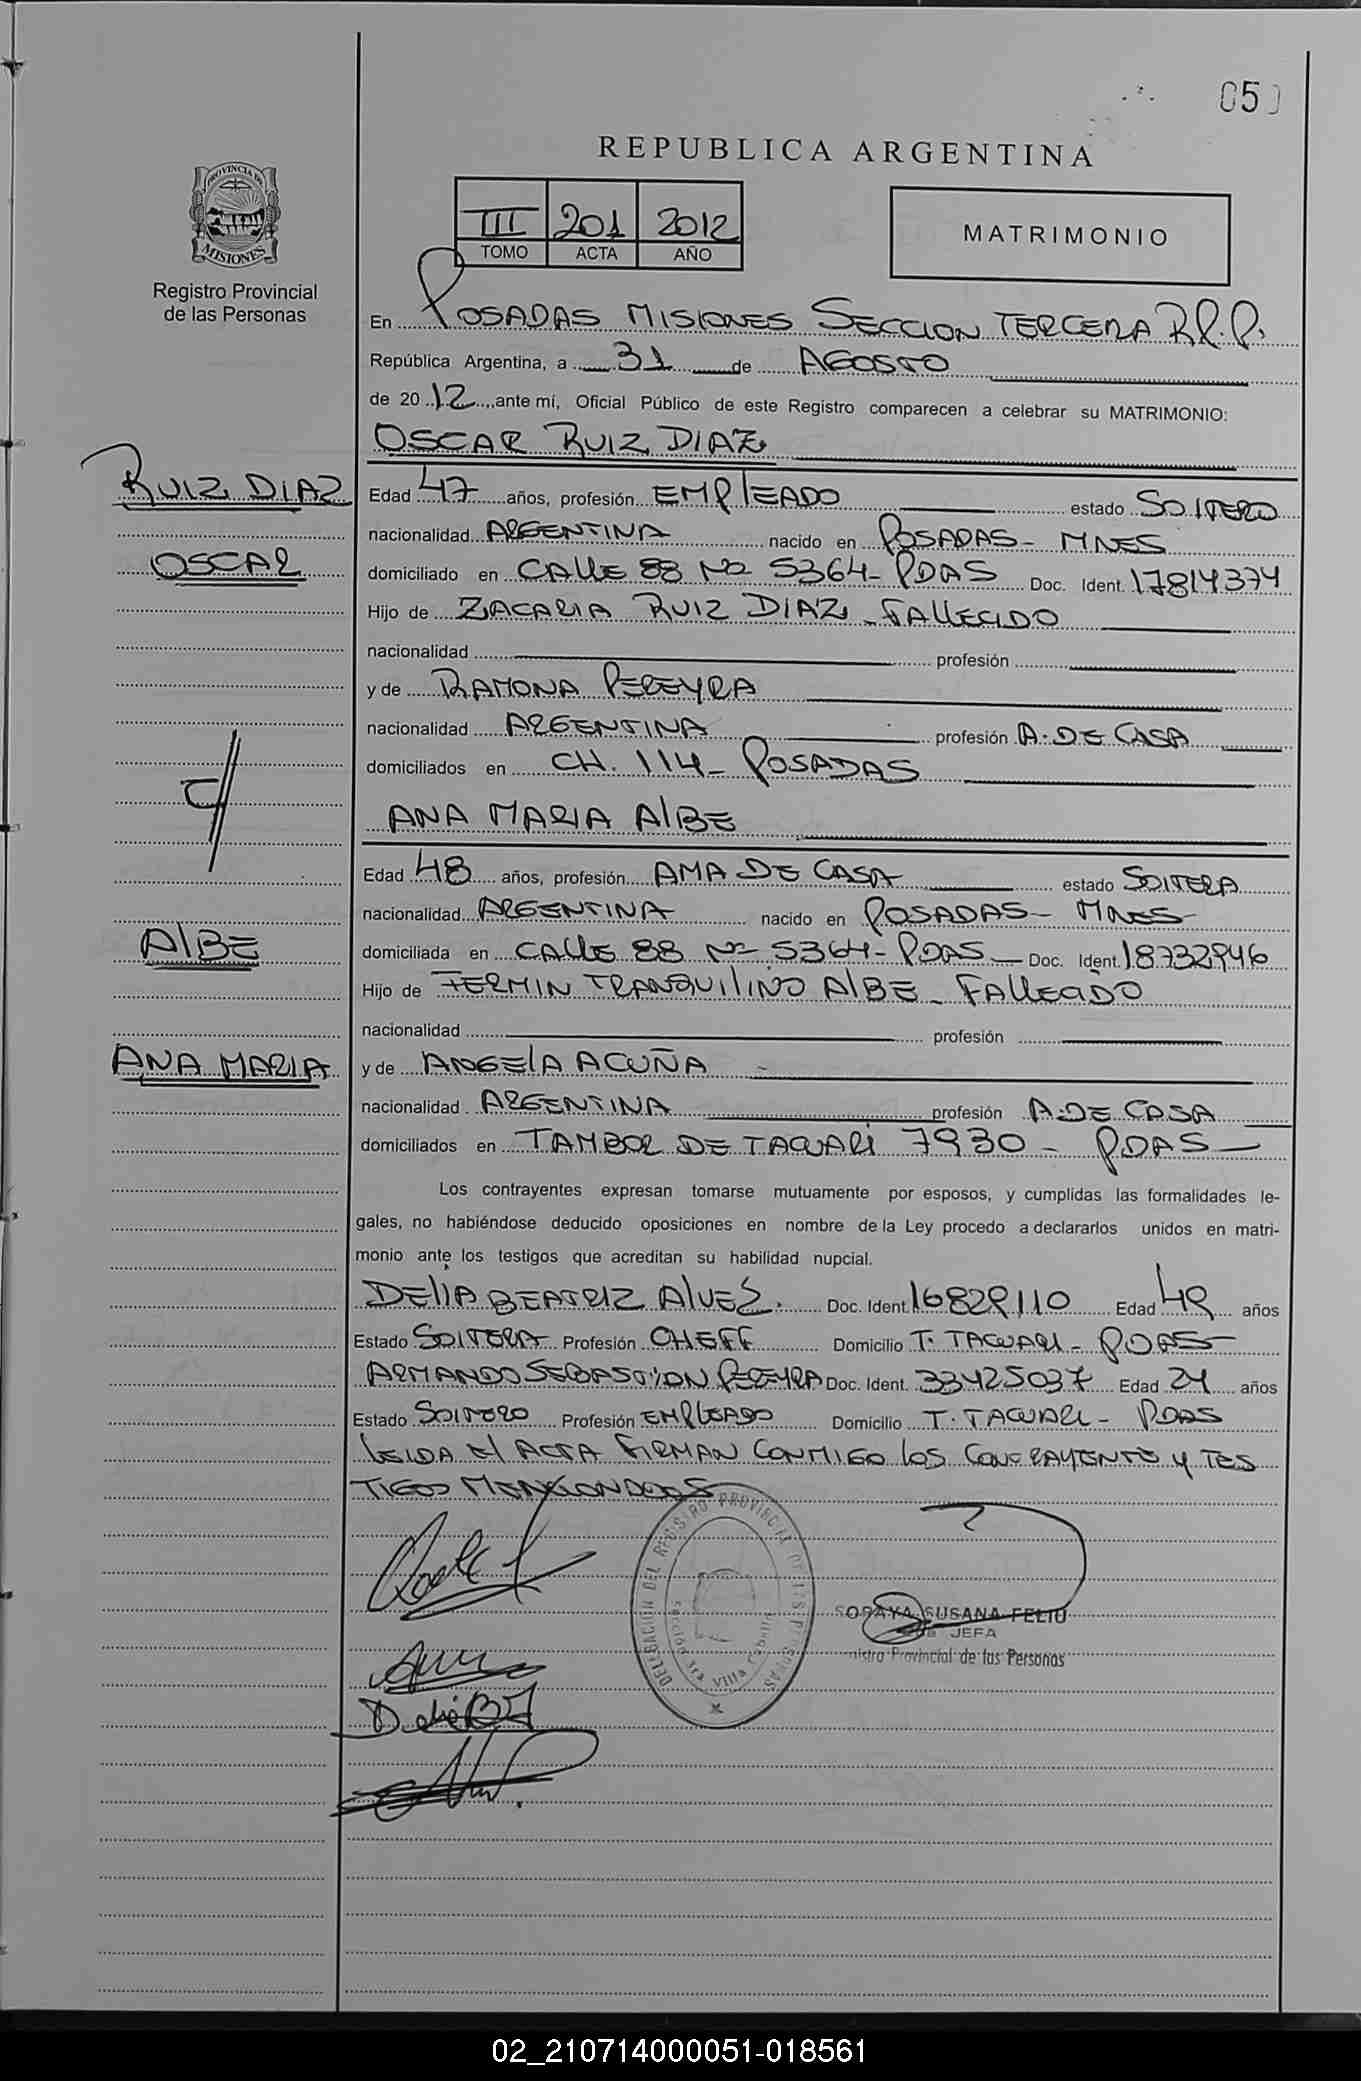 05
REPUBLICA ARGENTINA
PROVINCIA DE
MISIONES
Registro Provincial
de las Personas
III 201 2012
TOMO ACTA AÑO
MATRIMONIO
En POSADAS MISIONES SECCION TERCERA R.P.P.
República Argentina, a 31 de AGOSTO
de 2012, ante mí, Oficial Público de este Registro comparecen a celebrar su MATRIMONIO:
OSCAR RUIZ DIAZ
RUIZ DIAZ
OSCAR
Edad 47 años, profesión EMPLEADO estado SOLTERO
nacionalidad ARGENTINA nacido en POSADAS - MNES
domiciliado en CALLE 88 Nº 5364 - PDAS Doc. Ident. 17814374
Hijo de ZACARIA RUIZ DIAZ - FALLECIDO
nacionalidad profesión
y de RAMONA PEREYRA
nacionalidad ARGENTINA profesión A. DE CASA
domiciliados en CH. 114 - POSADAS
ANA MARIA ALBE
Edad 48 años, profesión AMA DE CASA estado SOLTERA
nacionalidad ARGENTINA nacido en POSADAS - MNES
ALBE
domiciliada en CALLE 88 Nº 5364 - PDAS - Doc. Ident. 18732946
Hijo de FERMIN TRANQUILINO ALBE - FALLECIDO
nacionalidad profesión
ANA MARIA
y de ANGELA ACUÑA -
nacionalidad ARGENTINA profesión A. DE CASA
domiciliados en TAMBOR DE TACUARI 7930 - PDAS -
Los contrayentes expresan tomarse mutuamente por esposos, y cumplidas las formalidades le-
gales, no habiéndose deducido oposiciones en nombre de la Ley procedo a declararlos unidos en matri-
monio ante los testigos que acreditan su habilidad nupcial.
DELIA BEATRIZ ALVEZ. Doc. Ident. 16829110 Edad 49 años
Estado SOLTERA Profesión CHEFF Domicilio T. TACUARI - PDAS -
ARMANDO SEBASTIAN PEREYRA Doc. Ident. 33425037 Edad 24 años
Estado SOLTERO Profesión EMPLEADO Domicilio T. TACUARI - PDAS
LEIDA EL ACTA FIRMAN CONMIGO LOS CONTRAYENTES Y TES
TIGOS MENCIONADOS
DELEGACION DEL REGISTRO PROVINCIAL DE LAS PERSONAS
3ra Villa Cabello
SORAYA SUSANA FELIU
JEFA
Provincial de las Personas
02_210714000051-018561